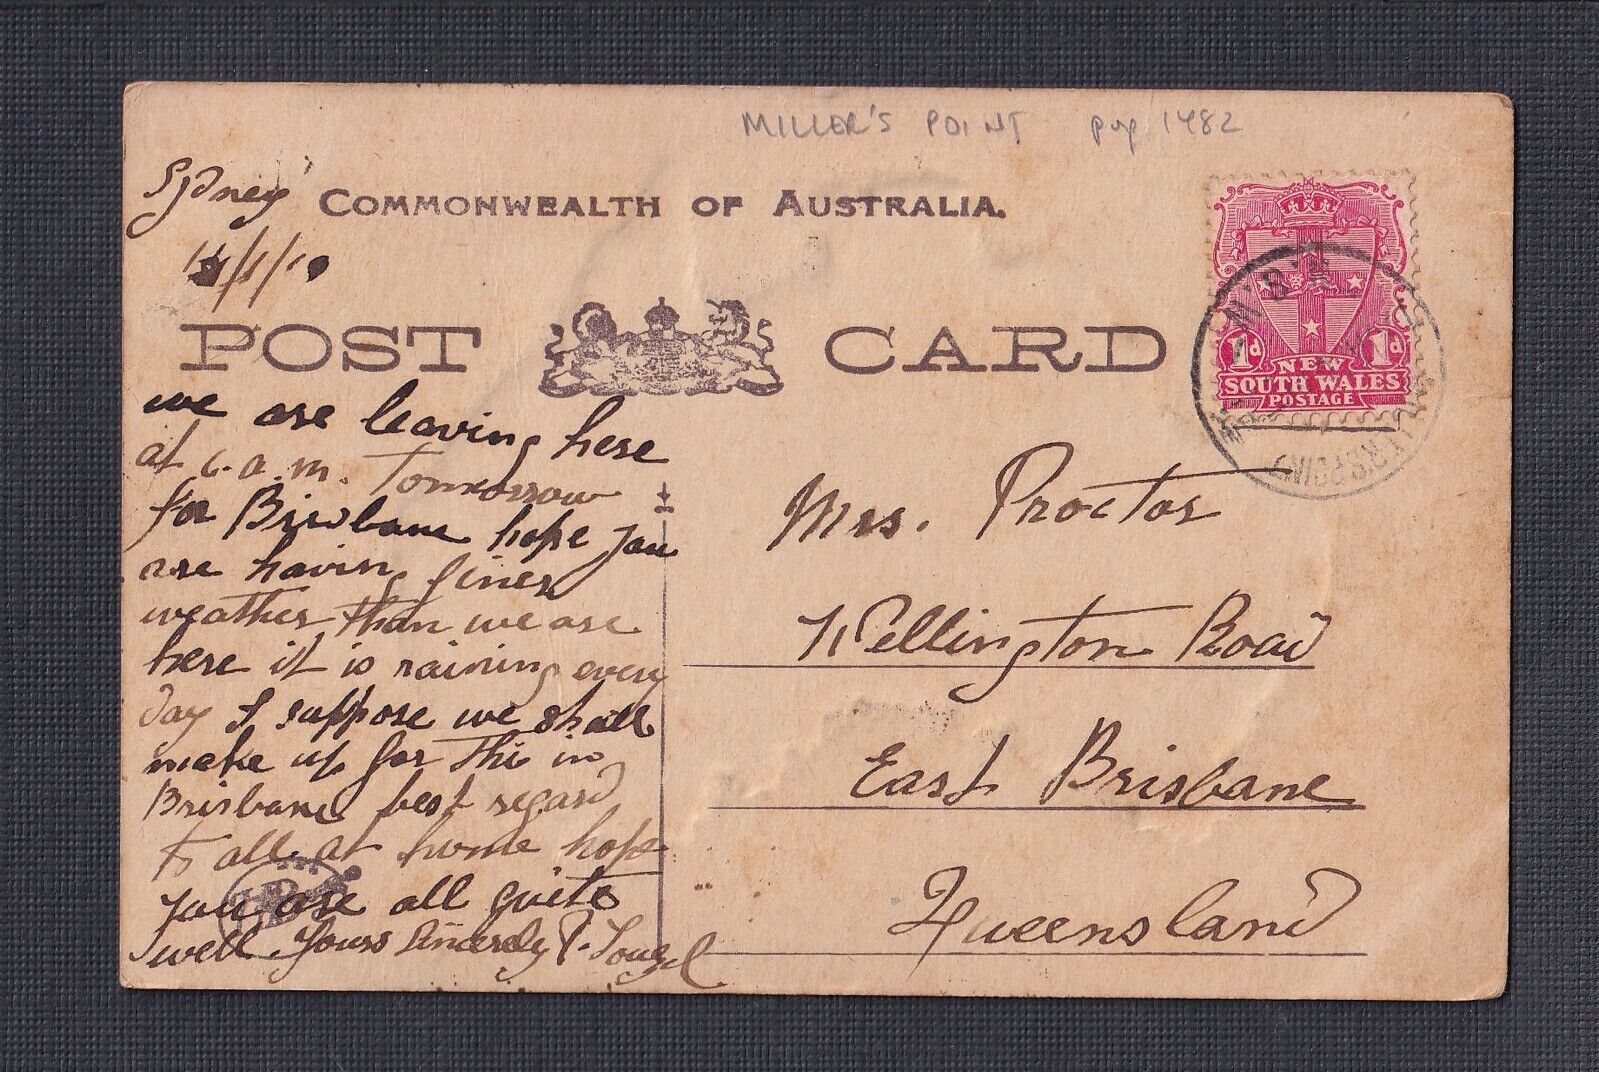 MILLER'S POINT pop 1482
Sydney
COMMONWEALTH OF AUSTRALIA.
/1/10
POST CARD
1d 1d
NEW
SOUTH WALES
POSTAGE
N.S.W
we are leaving here
at 6.a.m. Tomorrow
for Brisbane hope you
are having finer
weather than we are
here it is raining every
day I suppose we shall
make up for this in
Brisbane best regard
to all at home hope
you are all quite
well Yours Sincerely P.
Mrs. Proctor
Wellington Road
East Brisbane
Queensland